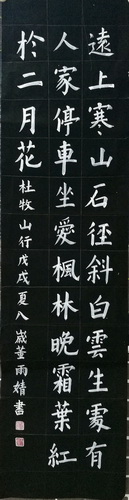 遠上寒山石徑斜白雲生處有
人家停車坐愛楓林晚霜葉紅
於二月花杜牧山行戊戌夏八歲董雨婧書